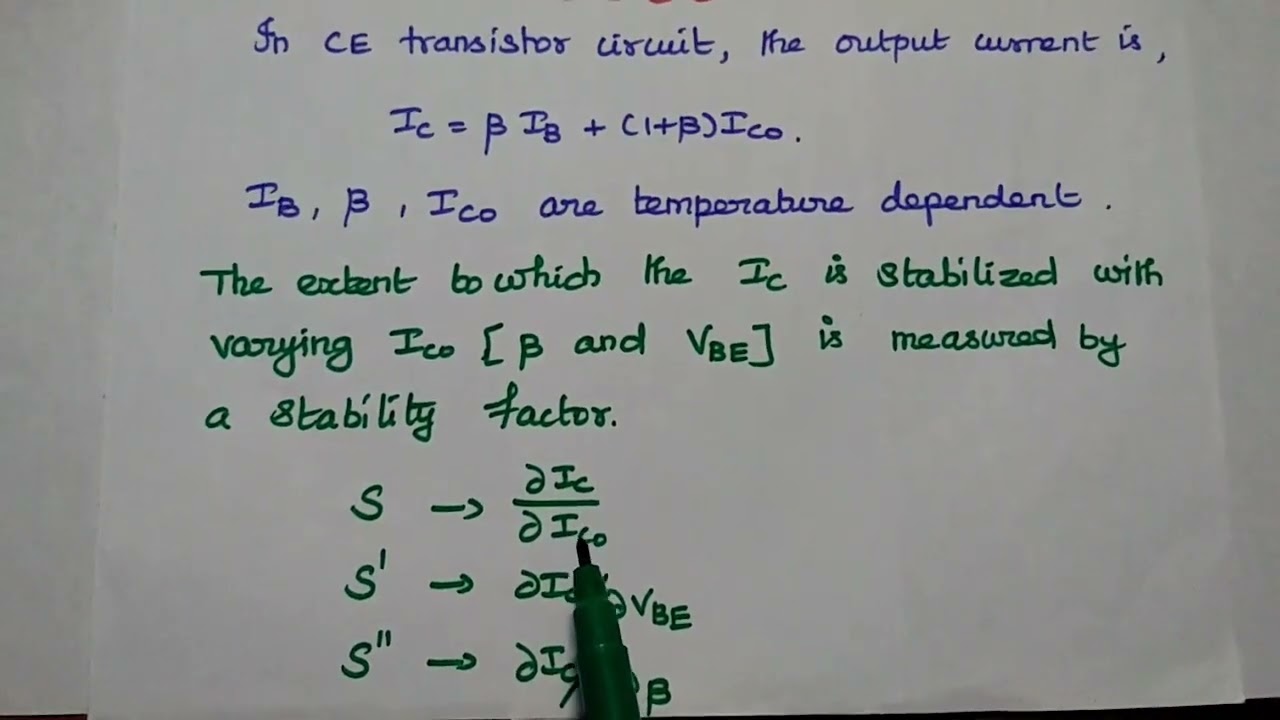 In CE transistor circuit, the output current is,
I_C = β I_B + (1+β) I_CO.
I_B, β, I_CO are temperature dependent.
The extent to which the I_C is stabilized with
varying I_CO [β and V_BE] is measured by
a stability factor.
S → ∂I_C / ∂I_CO
S' → ∂I ∂V_BE
S'' → ∂I β